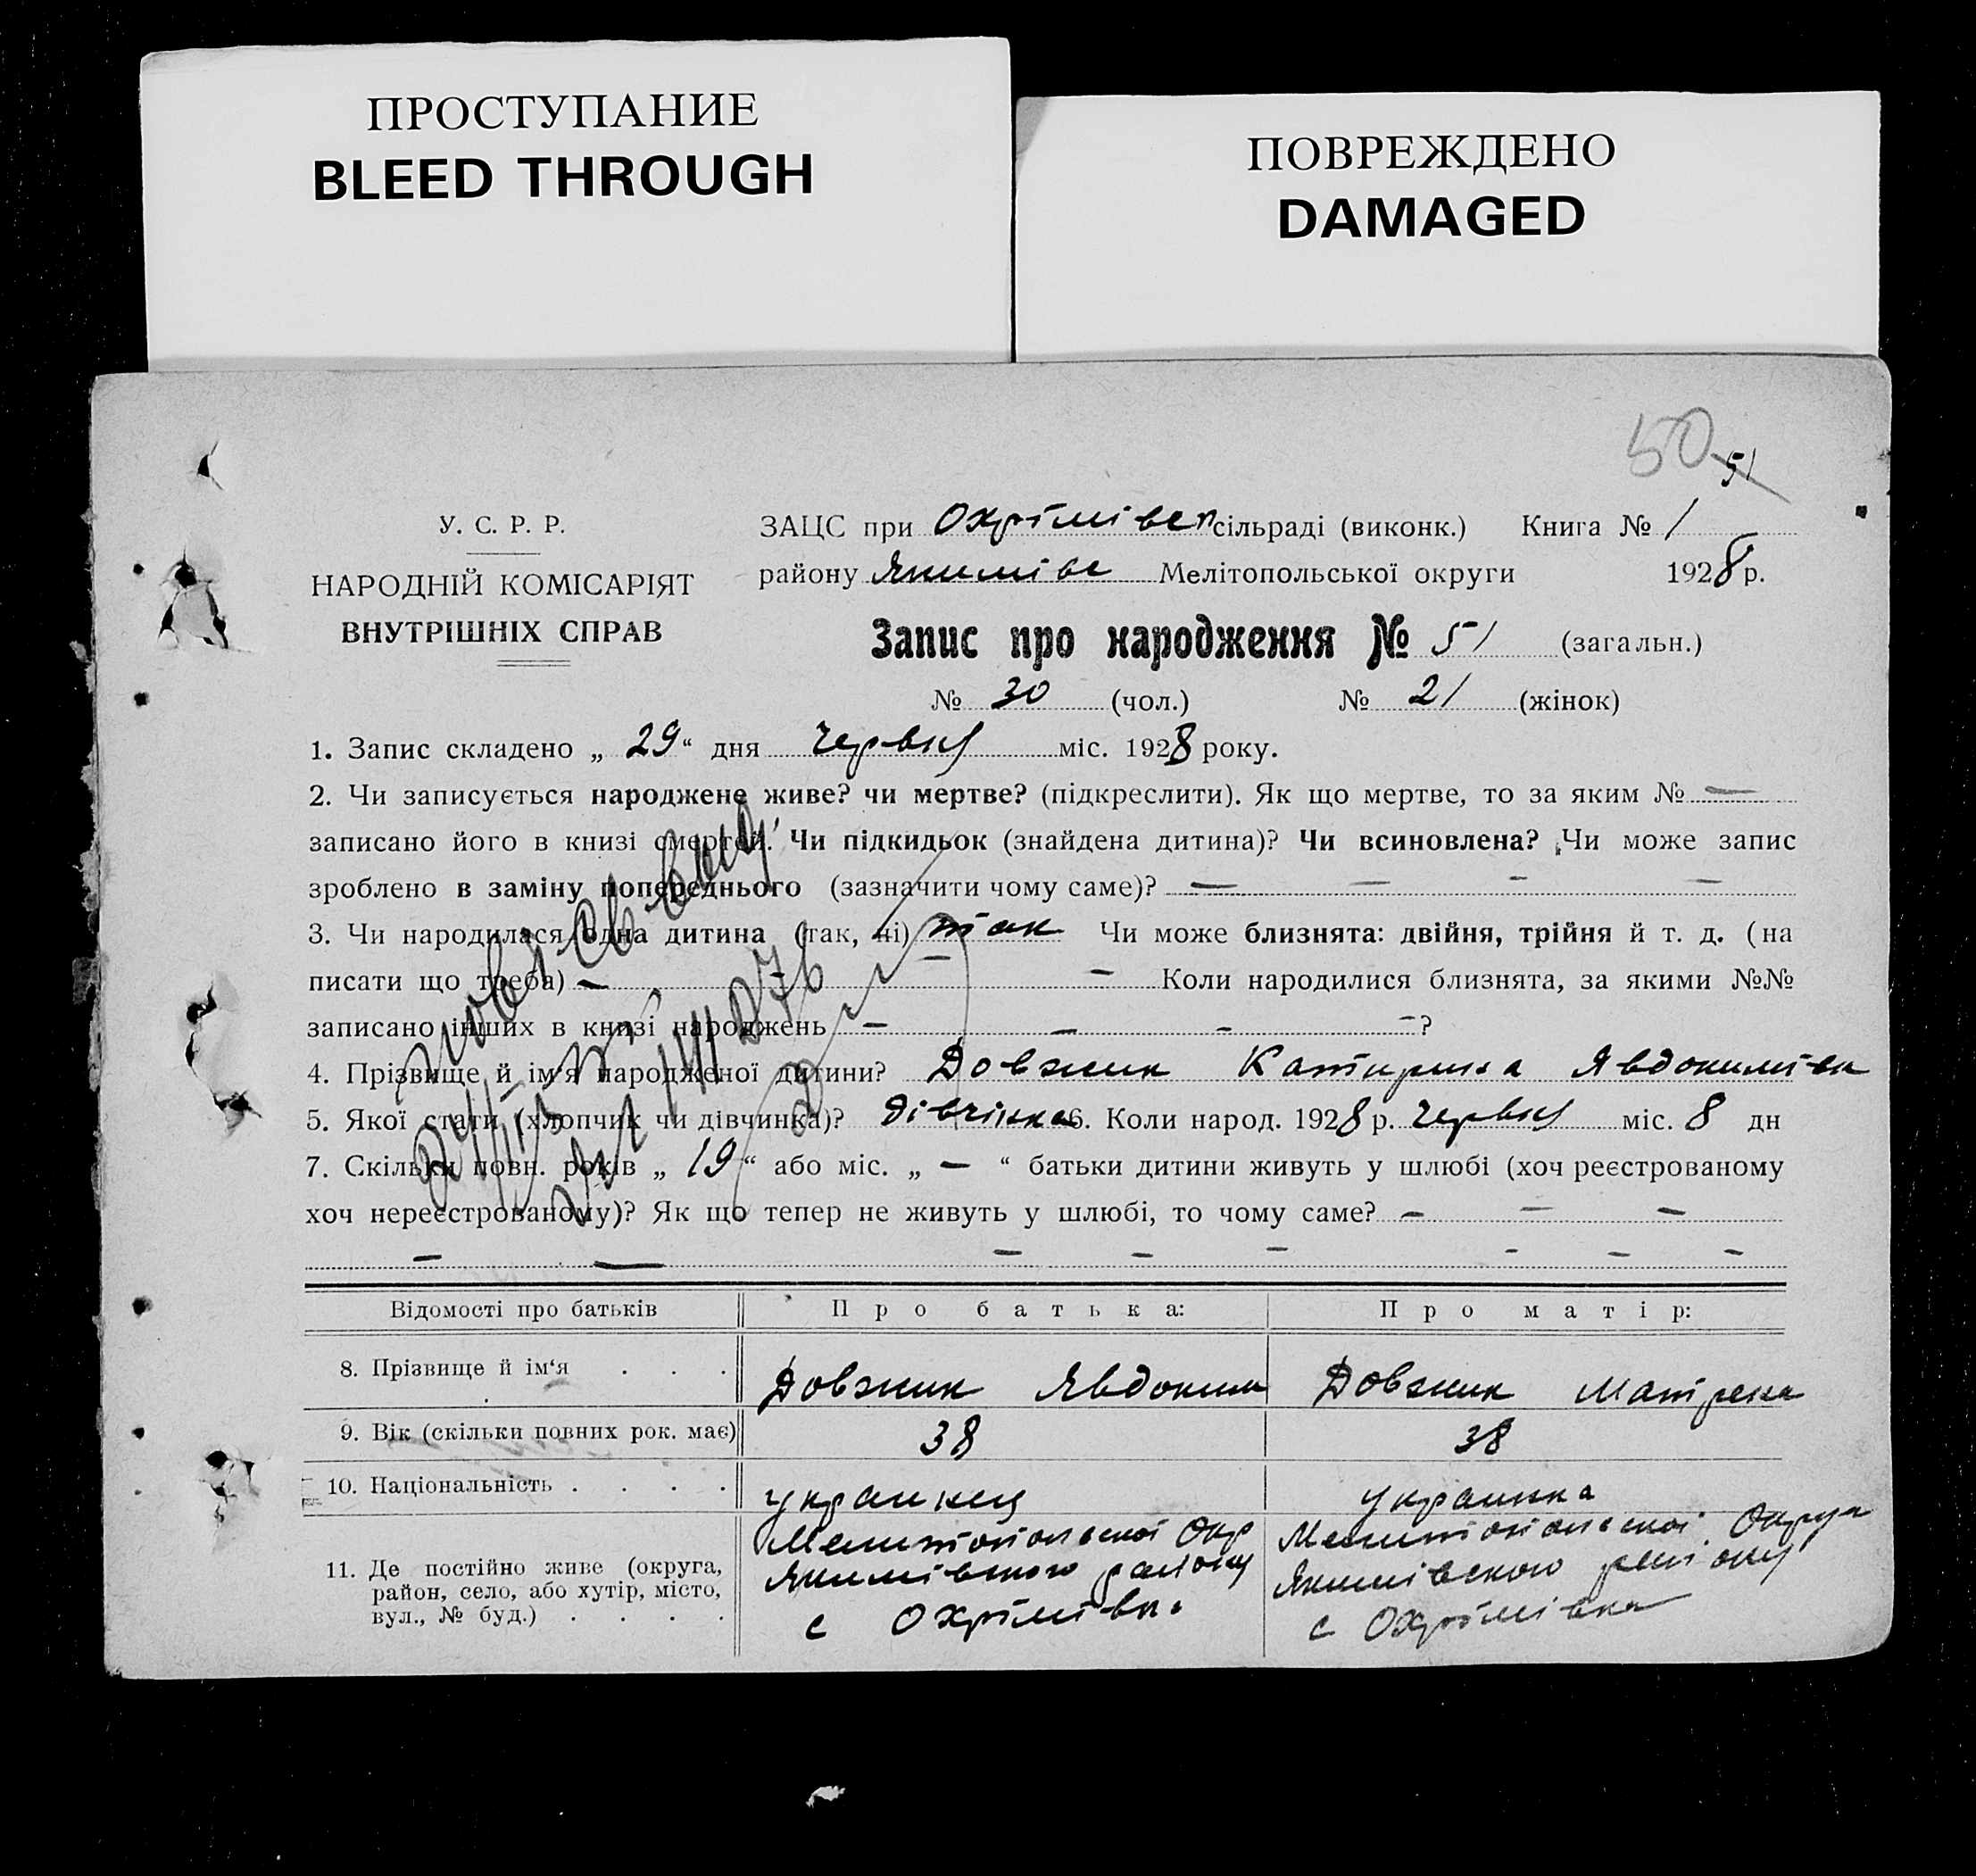 ПРОСТУПАНИЕ
BLEED THROUGH
ПОВРЕЖДЕНО
DAMAGED
50 51
У. С. Р. Р.
НАРОДНІЙ КОМІСАРІЯТ
ВНУТРІШНІХ СПРАВ
ЗАЦС при Охрімівсп сільраді (виконк.) Книга № 1
району Якимівс Мелітопольської округи 1928 р.
Запис про народження № 51 (загальн.)
№ 30 (чол.) № 21 (жінок)
1. Запис складено „ 29 “ дня червня міс. 1928 року.
2. Чи записується народжене живе? чи мертве? (підкреслити). Як що мертве, то за яким № —
записано його в книзі смертей. Чи підкидьок (знайдена дитина)? Чи всиновлена? Чи може запис
зроблено в заміну попереднього (зазначити чому саме)? — — - —
3. Чи народилася одна дитина (так, ні) так Чи може близнята: двійня, трійня й т. д. (на
писати що треба) — — — Коли народилися близнята, за якими №№
записано інших в книзі народжень — — - — ?
4. Прізвище й ім'я народженої дитини? Довжик Катирина Явдокимівн
5. Якої стати (хлопчик чи дівчинка)? дівчінка 6. Коли народ. 1928 р. червня міс. 8 дн
7. Скільки повн. років „ 19 “ або міс. „ — “ батьки дитини живуть у шлюбі (хоч реєстрованому
хоч нереєстрованому)? Як що тепер не живуть у шлюбі, то чому саме? — — —
— — — — — - — —
Відомості про батьків Про батька: Про матір:
8. Прізвище й ім‘я . . . Довжик Явдоким Довжик Матрена
9. Вік (скільки повних рок. має) 38 38
10. Національність . . . . украинец украинка
11. Де постійно живе (округа, Мелитопольской Окр Мелитопольскоі Округи
район, село, або хутір, місто, Якимівского району Якимівского району
вул., № буд.) . . . . с Охрімівка с Охрімівка